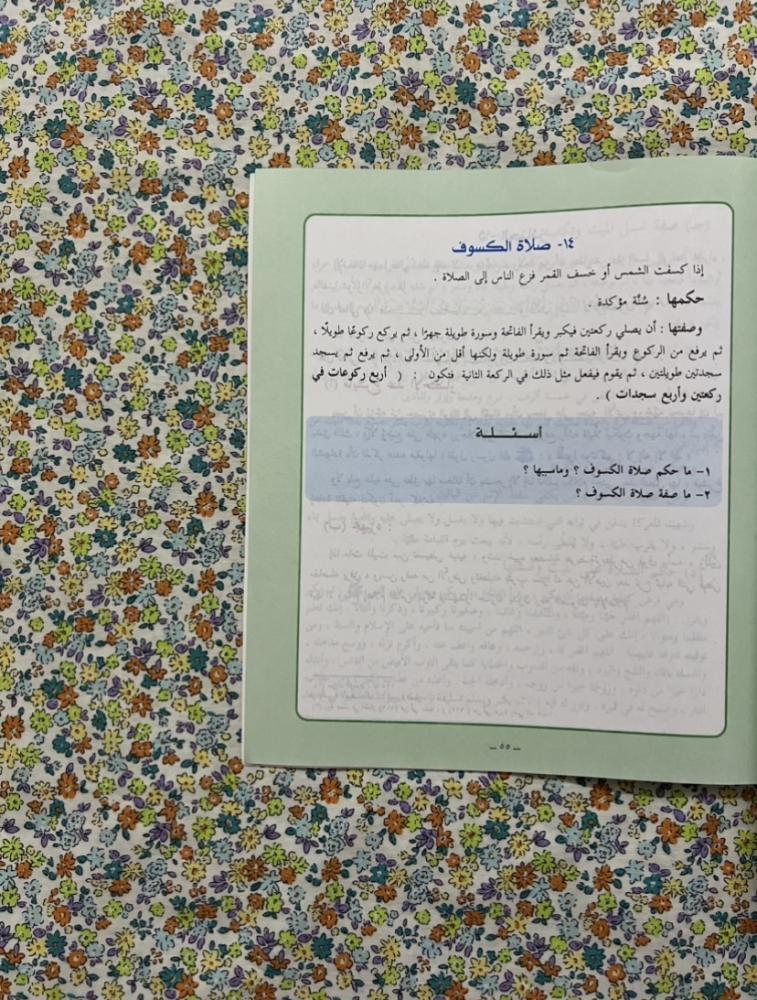 ١٤- صلاة الكسوف
إذا كسفت الشمس أو خسف القمر فزع الناس إلى الصلاة .
حكمها : سُنَّة مؤكدة .
وصفتها : أن يصلي ركعتين فيكبر ويقرأ الفاتحة وسورة طويلة جهرًا ، ثم يركع ركوعًا طويلًا ،
ثم يرفع من الركوع ويقرأ الفاتحة ثم سورة طويلة ولكنها أقل من الأولى ، ثم يرفع ثم يسجد
سجدتين طويلتين ، ثم يقوم فيفعل مثل ذلك في الركعة الثانية فتكون : ( أربع ركوعات في
ركعتين وأربع سجدات ) .
أسئـلـة
١- ما حكم صلاة الكسوف ؟ وماسببها ؟
٢- ما صفة صلاة الكسوف ؟
– ٥٥ –